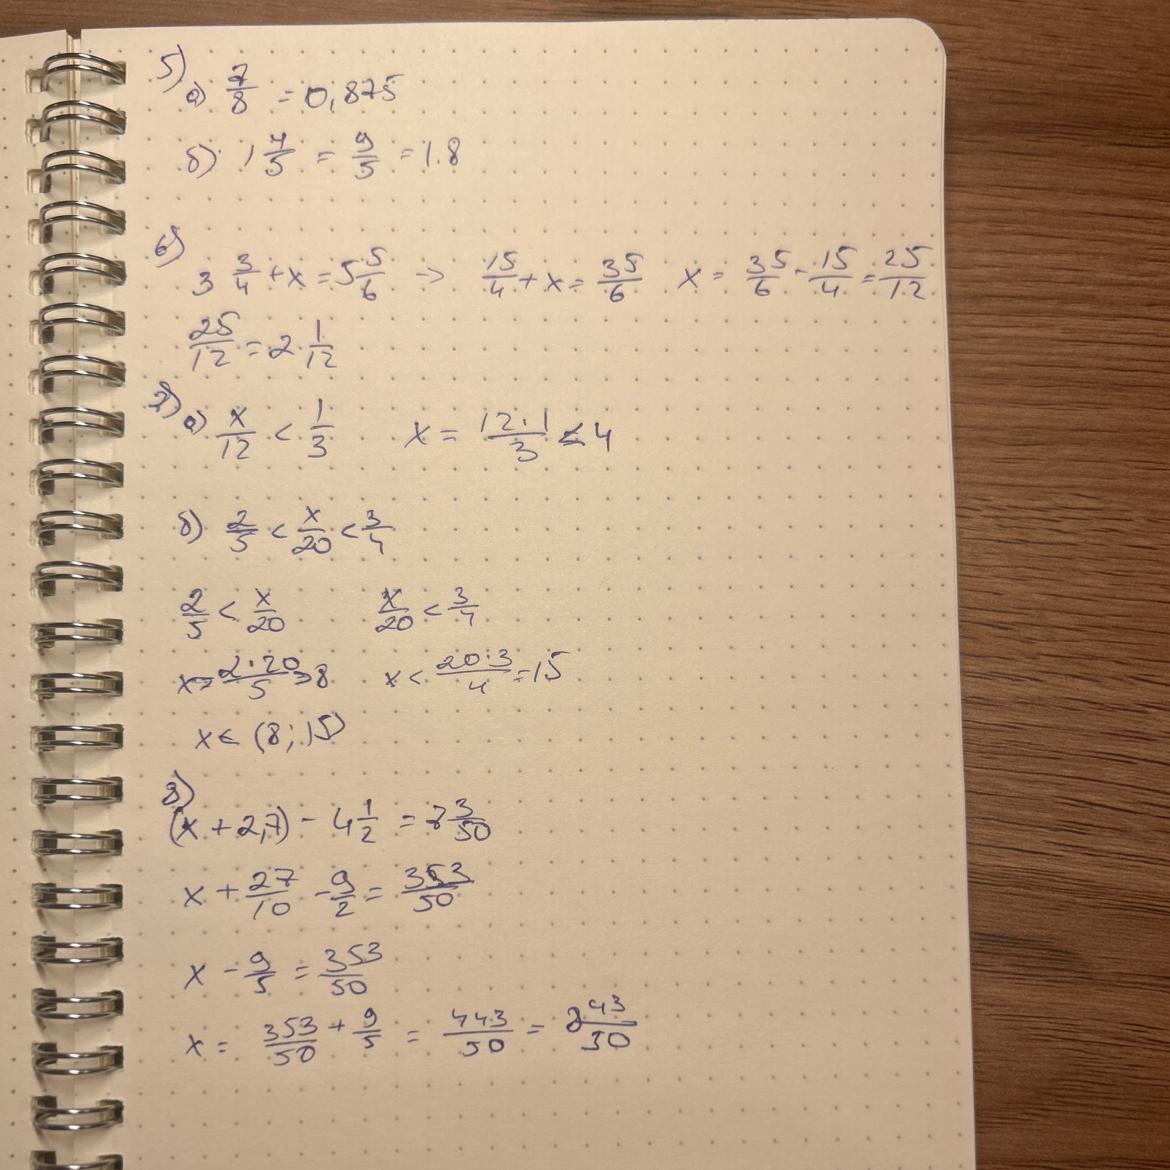 5)
а) 7/8 = 0,875
б) 1 4/5 = 9/5 = 1.8
6)
3 3/4 + x = 5 5/6 → 15/4 + x = 35/6 x = 35/6 - 15/4 = 25/12
25/12 = 2 1/12
7)
а) x/12 < 1/3 x = 12·1/3 < 4
б) 2/5 < x/20 < 3/4
2/5 < x/20 x/20 < 3/4
x > 2·20/5 = 8 x < 20·3/4 = 15
x < (8; 15)
8)
(x + 2,7) - 4 1/2 = 7 3/50
x + 27/10 - 9/2 = 353/50
x - 9/5 = 353/50
x = 353/50 + 9/5 = 443/50 = 8 43/50